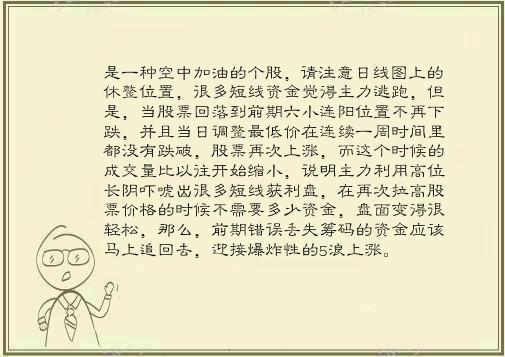 是一种空中加油的个股，请注意日线图上的
休整位置，很多短线资金觉得主力逃跑，但
是，当股票回落到前期六小连阳位置不再下
跌，并且当日调整最低价在连续一周时间里
都没有跌破，股票再次上涨，而这个时候的
成交量比以往开始缩小，说明主力利用高位
长阴吓唬出很多短线获利盘，在再次拉高股
票价格的时候不需要多少资金，盘面变得很
轻松，那么，前期错误丢失筹码的资金应该
马上追回去，迎接爆炸性的5浪上涨。